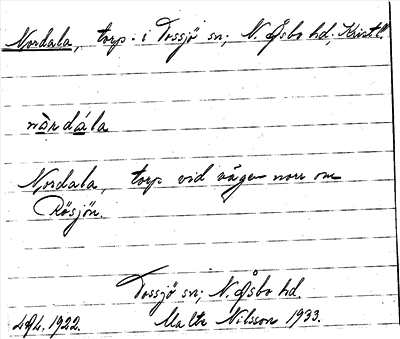 Nordala, torp i Tossjö sn; N. Åsbo hd; Krist.l.
nàrdála
Nordala, torp vid vägen norr om
Rösjön.
Tossjö sn; N. Åsbo hd.
1922. Malte Nilsson 1933.